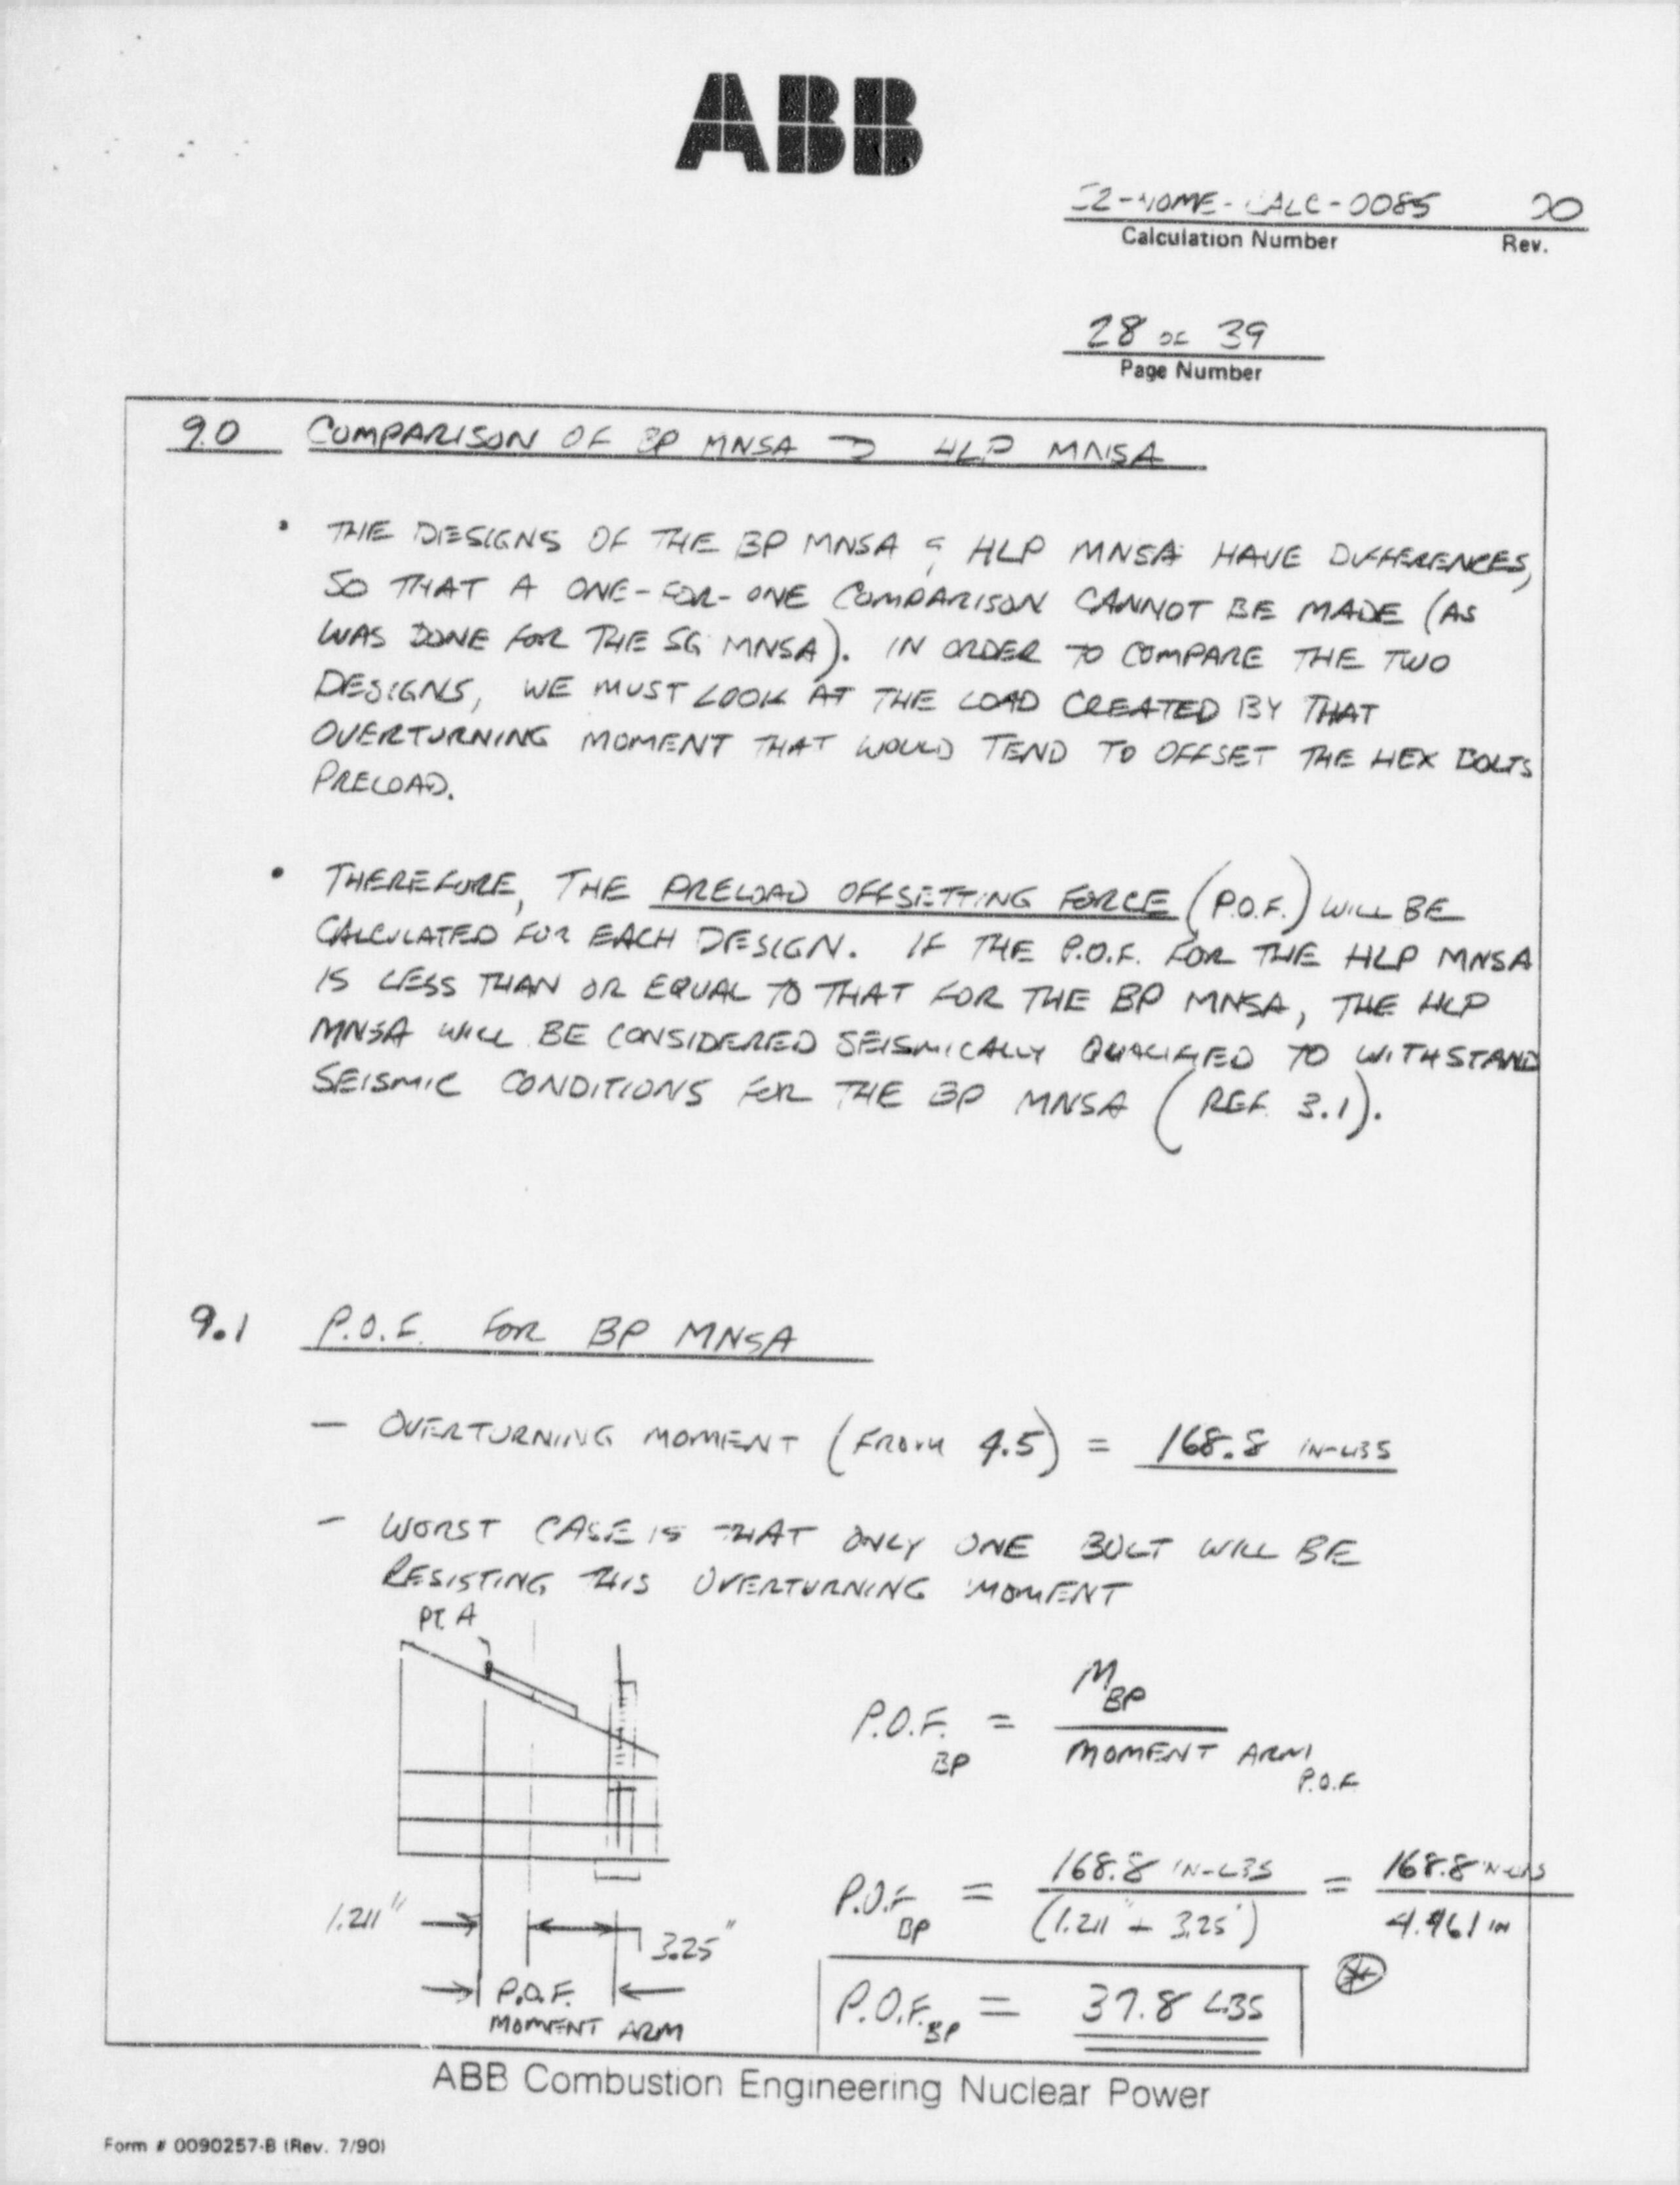 ABB
-CALC-0085
Calculation Number Rev.
28 OF 39
Page Number
9.0 COMPARISON OF BP MNSA TO HLP MNSA
• THE DESIGNS OF THE BP MNSA & HLP MNSA HAVE DIFFERENCES,
SO THAT A ONE-FOR-ONE COMPARISON CANNOT BE MADE (AS
WAS DONE FOR THE SG MNSA). IN ORDER TO COMPARE THE TWO
DESIGNS, WE MUST LOOK AT THE LOAD CREATED BY THAT
OVERTURNING MOMENT THAT WOULD TEND TO OFFSET THE HEX BOLTS
PRELOAD.
• THEREFORE, THE PRELOAD OFFSETTING FORCE (P.O.F.) WILL BE
CALCULATED FOR EACH DESIGN. IF THE P.O.F. FOR THE HLP MNSA
IS LESS THAN OR EQUAL TO THAT FOR THE BP MNSA, THE HLP
MNSA WILL BE CONSIDERED SEISMICALLY QUALIFIED TO WITHSTAND
SEISMIC CONDITIONS FOR THE BP MNSA (REF. 3.1).
9.1 P.O.F. FOR BP MNSA
— OVERTURNING MOMENT (FROM 4.5) = 168.8 IN-LBS
- WORST CASE IS THAT ONLY ONE BOLT WILL BE
RESISTING THIS OVERTURNING MOMENT
PT. A
P.O.F. BP = M BP / MOMENT ARM P.O.F.
P.O.F. BP = 168.8 IN-LBS / (1.211" + 3.25") = 168.8 IN-LBS / 4.461 IN
1.211" 3.25"
P.O.F.
MOMENT ARM
P.O.F. BP = 37.8 LBS
ABB Combustion Engineering Nuclear Power
Form # 0090257-B (Rev. 7/90)